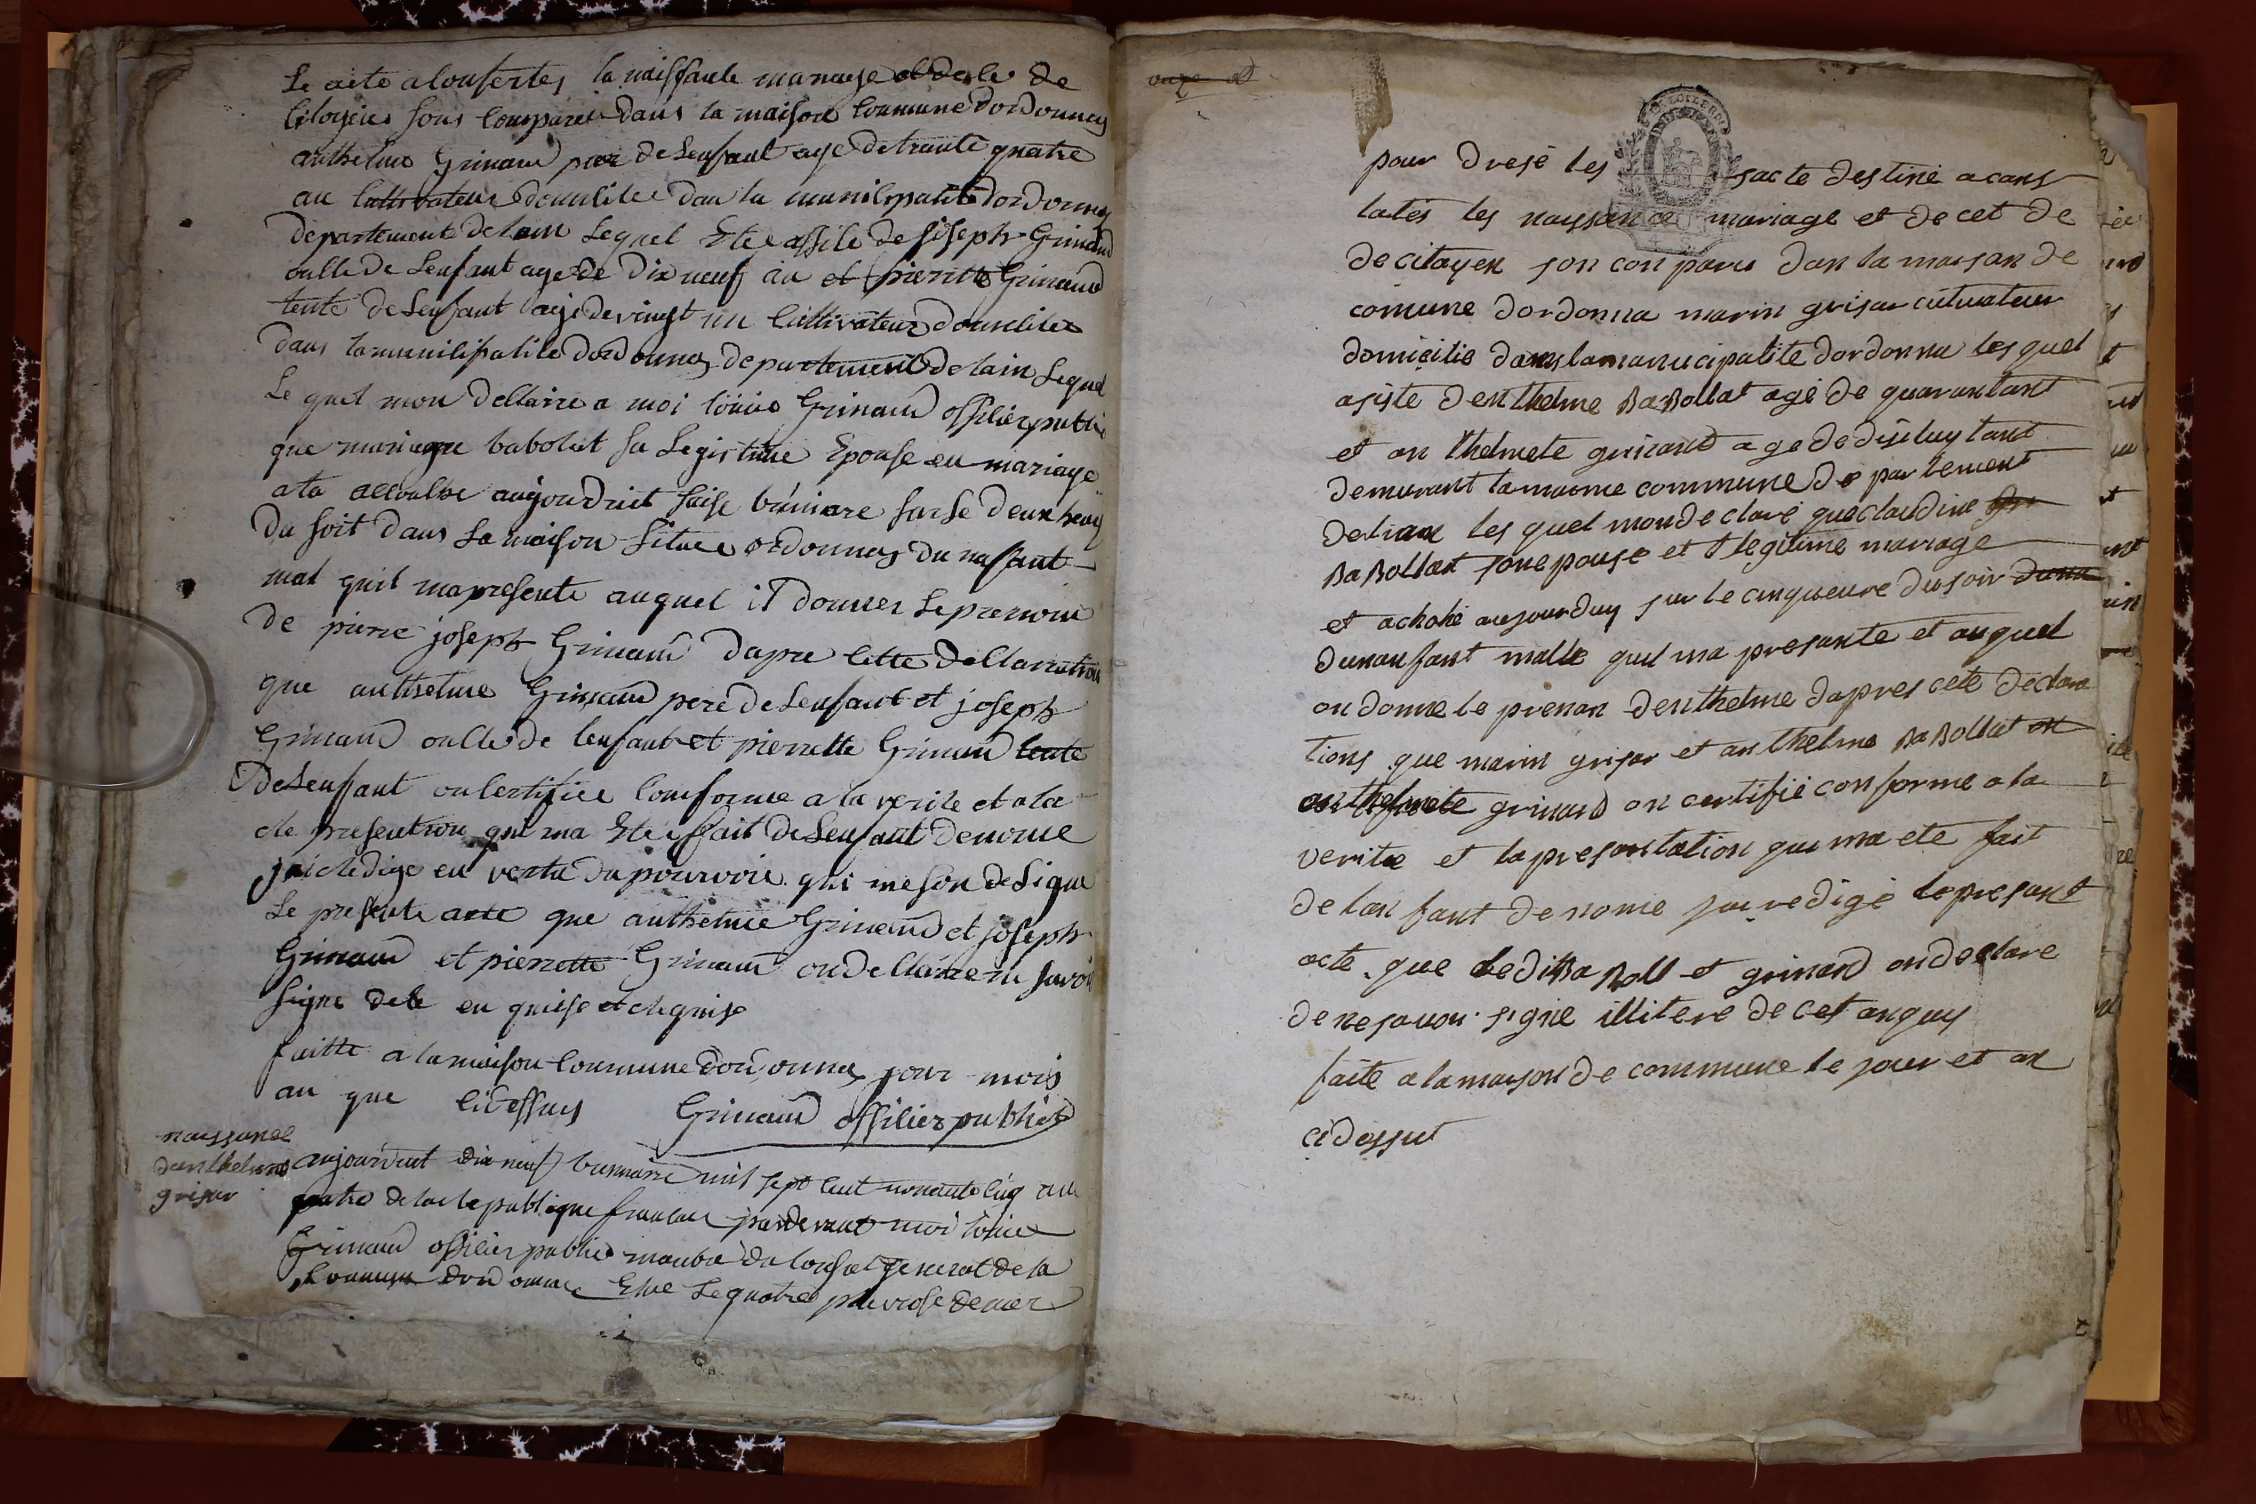 le acte a consertes la naissance manage et dele de
citoyens sons comparu dans la maison commune dordonnas
anthelme Grinand pere de lenfant age de trante quatre
an cultivateur domilile dan la municipalité dordonnas
departement de lain lequel ete assile de joseph Grinand
oulle de lenfant age de dix neuf an et pierrette Grinand
tente de lenfant age de vingt un cultivateur domlilie
dans la municipalite dordonnas departement de lain lequel
le quel mon dellaire a moi Grinand offilier public
que mariagne babolat sa legistime epouse en mariage
ata accoulhe aujourdhuit saise brumere sur le deux heurs
du soit dans la maison situee ordonnas du nassant
mal quil mapresente auquel il donner le prenom
de pierre joseph Grinand dapre cette dellaration
que anthelme Grinand pere de lenfant et joseph
Grinand oulle de lenfant et pierrette Grinand tente
de lenfant on certifiee conforme a la verite et a la
de presention qui ma ete fait de lenfant denome
jai redige en vertu du pourvoir qui me son deligue
le presente acte que anthelme Grinand et joseph
Grinand et pierrette Grinand on dellaire ne savoir
signe dele en quise et requise
faitte a la maison commune dordonnas jour mois
an que cidessus Grinand offilier public
naissance
danthelme
grisar
aujourduit dix neuf brumaire mil sept cent nonante cinq an
quatre de la republique francaise pardevant moi
Grinand offilier public manbre du consel general de la
commune dordonnas elue le quatre pluviose dernier
onze
pour dresé les acte destiné a cons
tatés les nayssance mariage et de cet de
de citoyen son con paru dan la maison de
comune dordonna marin grisar cultivateur
domicilie dans la manucipalite dordonna les quel
asiste denthelme BaBollat agé de quarantant
et an thelmete grinand age de disluytant
demurant la maime commune de partement
delian les quel mon de claré que claudine
BaBollat son epouse et legitime mariage
et achohé aujourduy sur le cinqueure du soir
dunanfant malle quil ma presante et auquel
on donne le prenon denthelme dapres cete declara
tions que marin grisar et anthelme BaBollat
anthelmete grinand on certifié conforme a la
verite et la presantation qui ma ete fait
de lan fant de nome jai redigé le presant
acte que le dit BaBoll et grinand on declare
de ne savoir signe illitere de cet anquy
faite a la maison de commune le jour et an
ci dessut